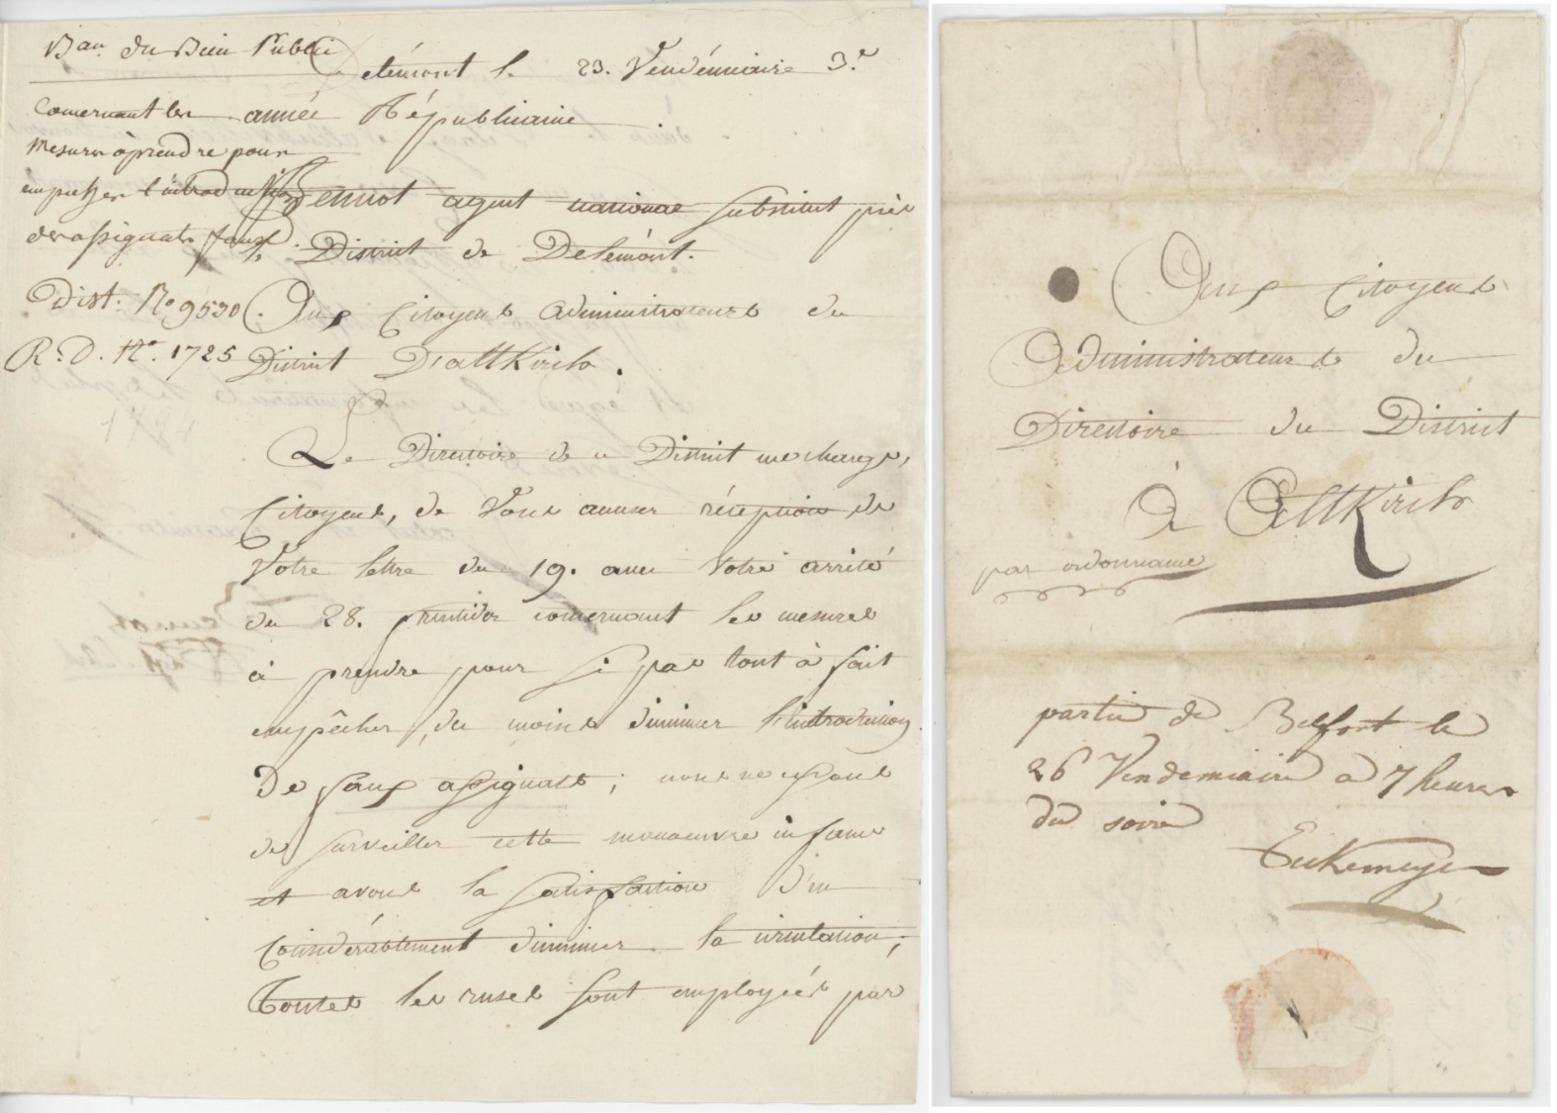 Bau. du Bien Public
Delémont le 23. Vendémiaire 3.e
année Républicaine
Concernant les
mesures à prendre pour
empecher l'introduction
des assignats faux.
Dist. No 9530
R. D. No. 1725
agent national substitut près
le District de Delémont.
Aux Citoyens administrateurs du
District D'altKirch.
Le Directoire de ce District me charge,
Citoyens, de Vous accuser réception de
Votre lettre du 19. avec Votre arrêté
du 28. fructidor concernant les mesures
à prendre pour si pas tout à fait
empêcher, du moins diminuer l'introduction
De faux assignats; nous ne cessons
de surveiller cette manoeuvre infame
et avons la satisfaction D'en
Considérablement diminuer la circulation;
Toutes les ruses sont employées par
Aux Citoyens
Administrateurs du
Directoire du District
à AltKirch
par ordonnance
partie de Belfort le
26 Vendemiaire a 7 heures
du soire